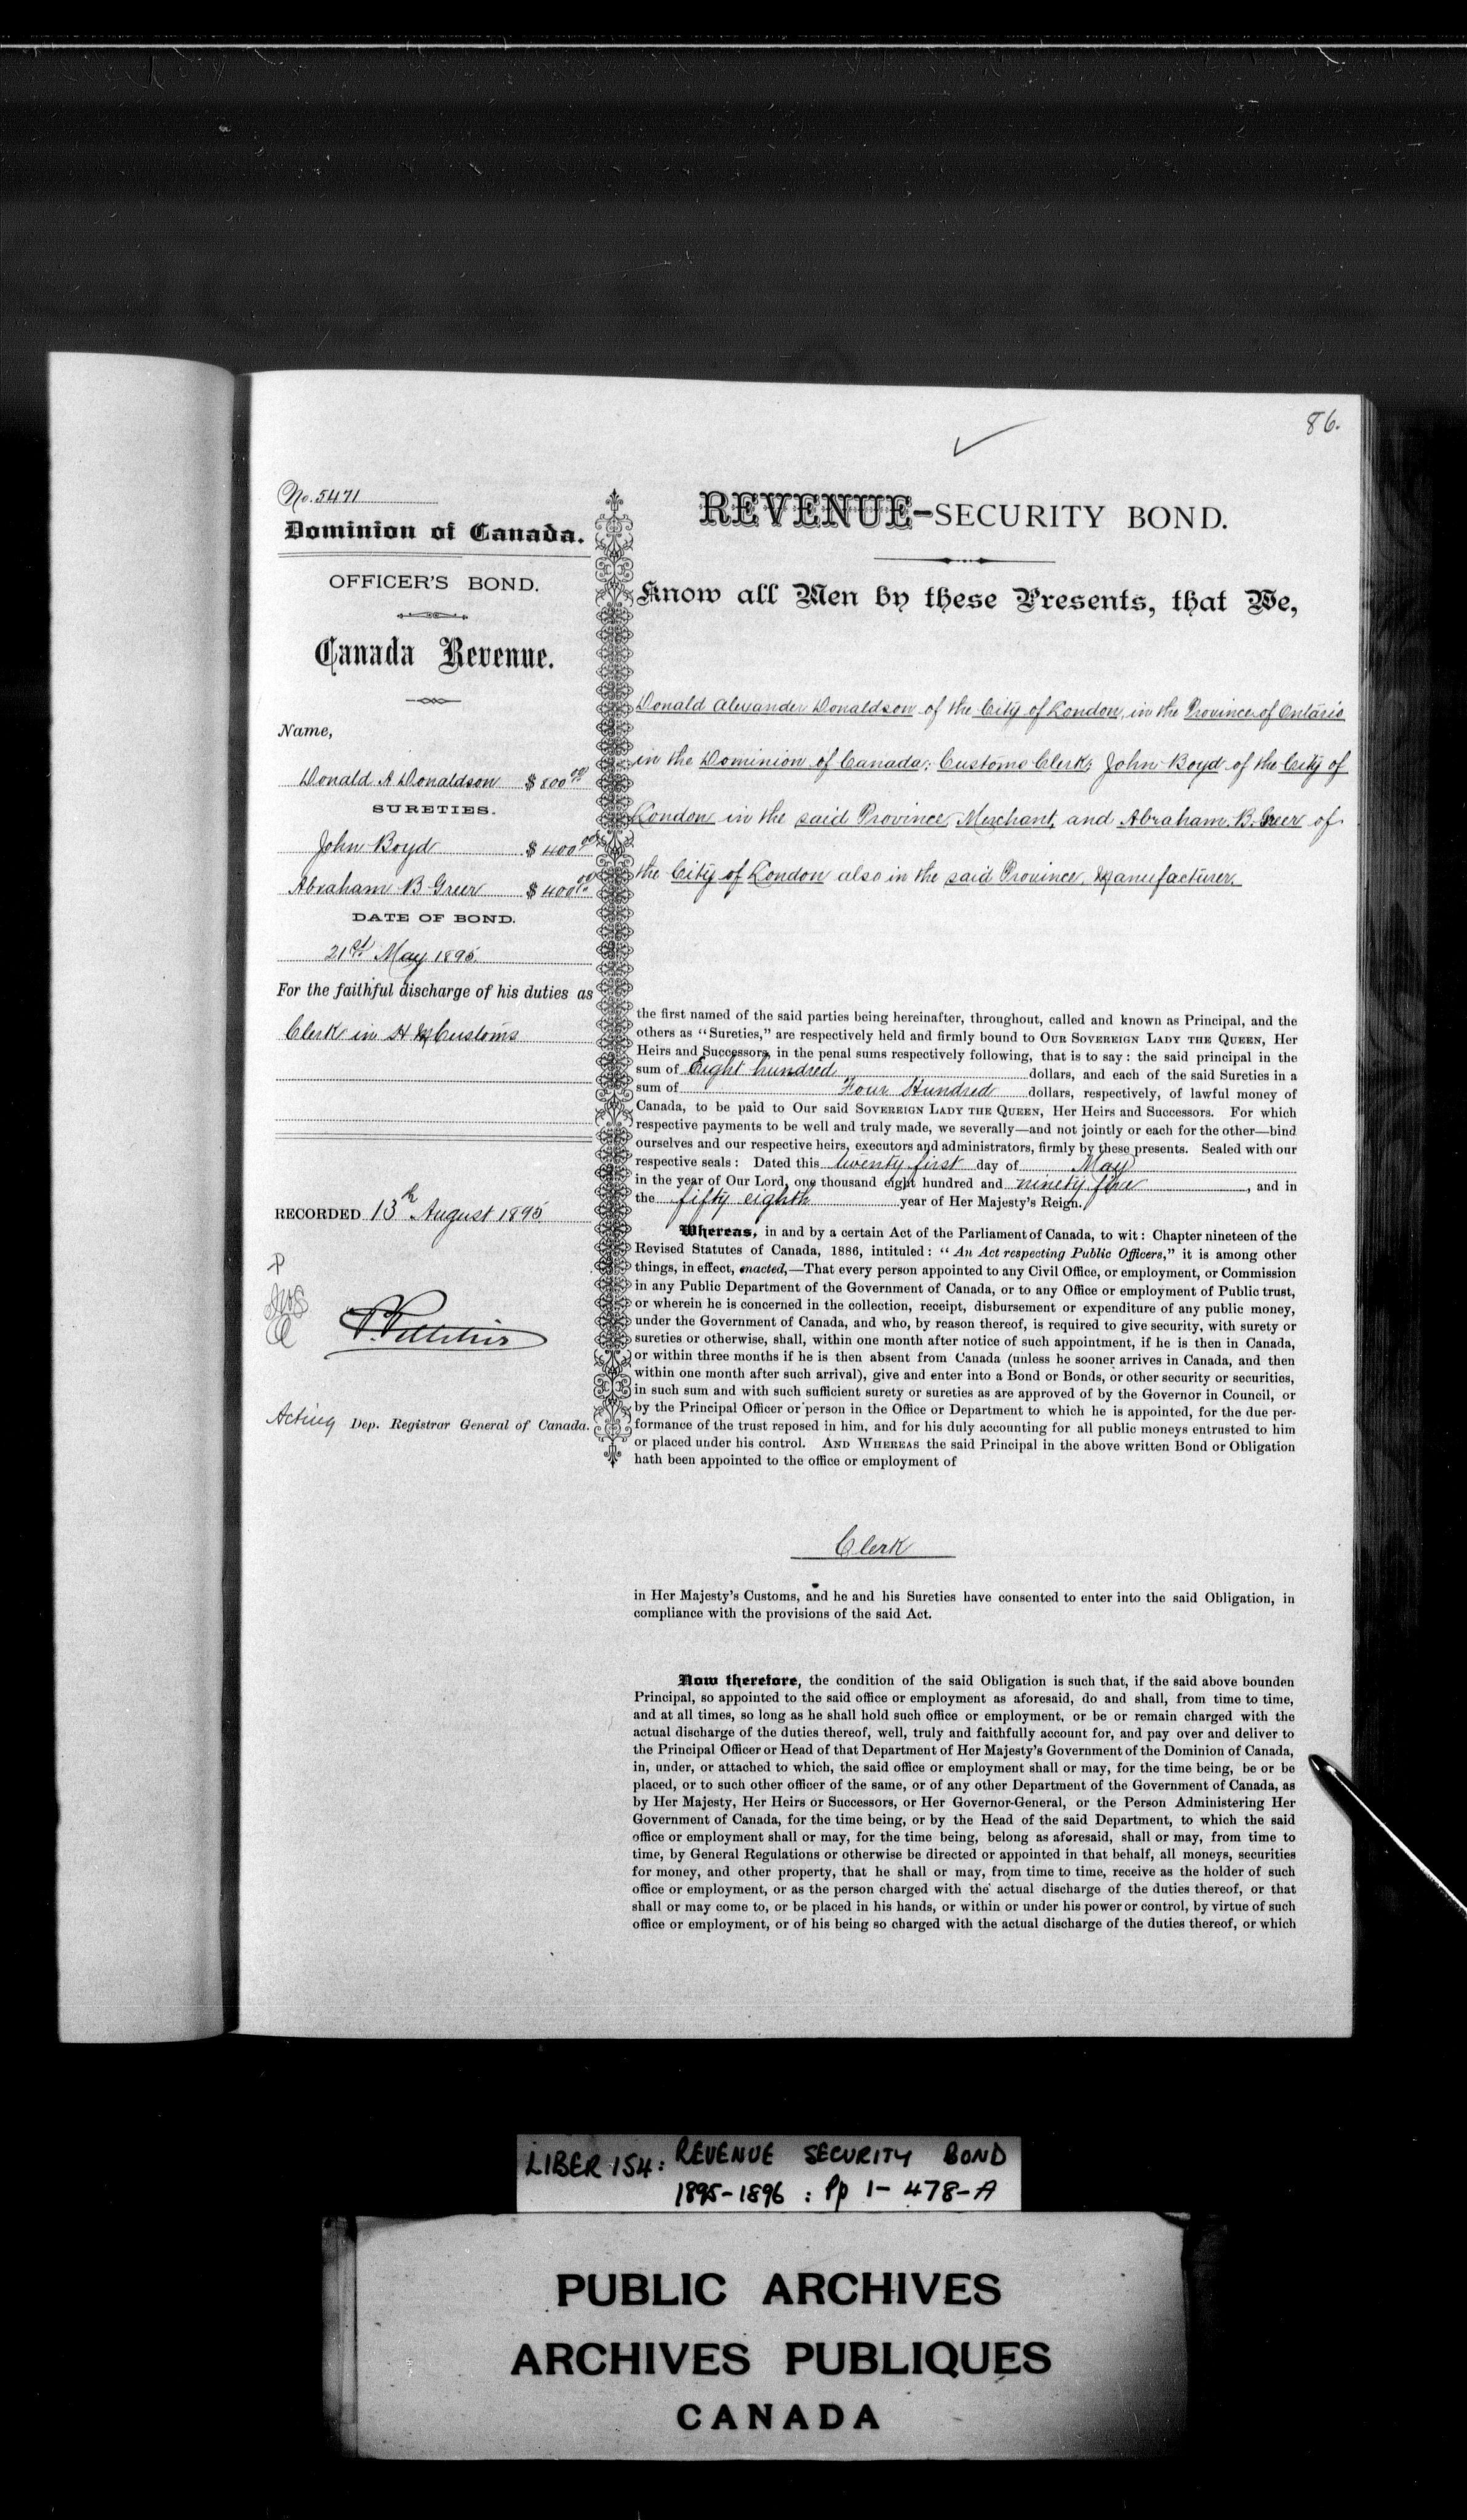 86.
No. 5471
Dominion of Canada.
OFFICER'S BOND.
Canada Revenue.
Name,
Donald A Donaldson $800 00
SURETIES.
John Boyd $400 00
Abraham B Greer $400 00
DATE OF BOND.
21st May 1895.
For the faithful discharge of his duties as
Clerk in H M Customs
RECORDED 13th August 1895
Acting Dep. Registrar General of Canada.
REVENUE-SECURITY BOND.
Know all Men by these Presents, that We,
Donald Alexander Donaldson of the City of London, in the Province of Ontario
in the Dominion of Canada; Customs Clerk; John Boyd of the City of
London in the said Province, Merchant, and Abraham B. Greer of
the City of London also in the said Province, Manufacturer.
the first named of the said parties being hereinafter, throughout, called and known as Principal, and the
others as "Sureties," are respectively held and firmly bound to OUR SOVEREIGN LADY THE QUEEN, Her
Heirs and Successors, in the penal sums respectively following, that is to say: the said principal in the
sum of Eight hundred dollars, and each of the said Sureties in a
sum of Four Hundred dollars, respectively, of lawful money of
Canada, to be paid to Our said SOVEREIGN LADY THE QUEEN, Her Heirs and Successors. For which
respective payments to be well and truly made, we severally—and not jointly or each for the other—bind
ourselves and our respective heirs, executors and administrators, firmly by these presents. Sealed with our
respective seals: Dated this twenty first day of May
in the year of Our Lord, one thousand eight hundred and ninety five, and in
the fifty eighth year of Her Majesty's Reign.
Whereas, in and by a certain Act of the Parliament of Canada, to wit: Chapter nineteen of the
Revised Statutes of Canada, 1886, intituled: "An Act respecting Public Officers," it is among other
things, in effect, enacted,—That every person appointed to any Civil Office, or employment, or Commission
in any Public Department of the Government of Canada, or to any Office or employment of Public trust,
or wherein he is concerned in the collection, receipt, disbursement or expenditure of any public money,
under the Government of Canada, and who, by reason thereof, is required to give security, with surety or
sureties or otherwise, shall, within one month after notice of such appointment, if he is then in Canada,
or within three months if he is then absent from Canada (unless he sooner arrives in Canada, and then
within one month after such arrival), give and enter into a Bond or Bonds, or other security or securities,
in such sum and with such sufficient surety or sureties as are approved of by the Governor in Council, or
by the Principal Officer or person in the Office or Department to which he is appointed, for the due per-
formance of the trust reposed in him, and for his duly accounting for all public moneys entrusted to him
or placed under his control. AND WHEREAS the said Principal in the above written Bond or Obligation
hath been appointed to the office or employment of
Clerk
in Her Majesty's Customs, and he and his Sureties have consented to enter into the said Obligation, in
compliance with the provisions of the said Act.
Now therefore, the condition of the said Obligation is such that, if the said above bounden
Principal, so appointed to the said office or employment as aforesaid, do and shall, from time to time,
and at all times, so long as he shall hold such office or employment, or be or remain charged with the
actual discharge of the duties thereof, well, truly and faithfully account for, and pay over and deliver to
the Principal Officer or Head of that Department of Her Majesty's Government of the Dominion of Canada,
in, under, or attached to which, the said office or employment shall or may, for the time being, be or be
placed, or to such other officer of the same, or of any other Department of the Government of Canada, as
by Her Majesty, Her Heirs or Successors, or Her Governor-General, or the Person Administering Her
Government of Canada, for the time being, or by the Head of the said Department, to which the said
office or employment shall or may, for the time being, belong as aforesaid, shall or may, from time to
time, by General Regulations or otherwise be directed or appointed in that behalf, all moneys, securities
for money, and other property, that he shall or may, from time to time, receive as the holder of such
office or employment, or as the person charged with the actual discharge of the duties thereof, or that
shall or may come to, or be placed in his hands, or within or under his power or control, by virtue of such
office or employment, or of his being so charged with the actual discharge of the duties thereof, or which
LIBER 154: REVENUE SECURITY BOND
1895-1896 : Pp 1-478-A
PUBLIC ARCHIVES
ARCHIVES PUBLIQUES
CANADA